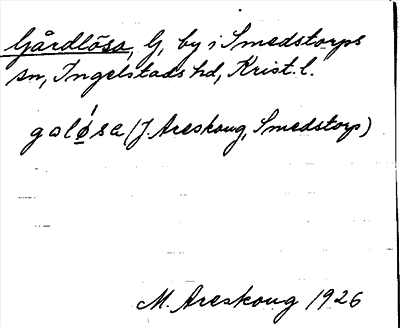 Gårdlösa, G, by i Smedstorps
sn, Ingelstads hd, Krist. l.
galǿsa (J. Areskoug, Smedstorp)
M. Areskoug 1926